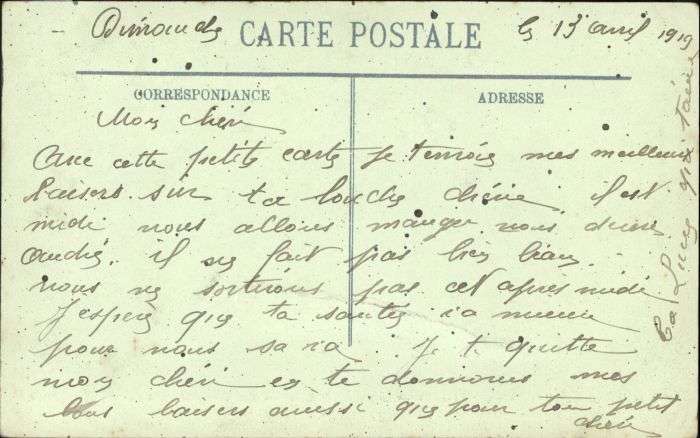 Dimanche CARTE POSTALE le 13 avril 1919
CORRESPONDANCE ADRESSE
Mon chéri
Avec cette petite carte je t'envoie mes meilleurs
baisers sur ta bouche chérie il est
midi nous allons manger nous deux
André. il ne fait pas bien beau
nous ne sortirons pas cet après midi
J'espère que ta santée va mieux
pour nous sa va Je te quitte
mon chéri en te donnons mes
baisers aussi que pour ton petit
chéri
Ta